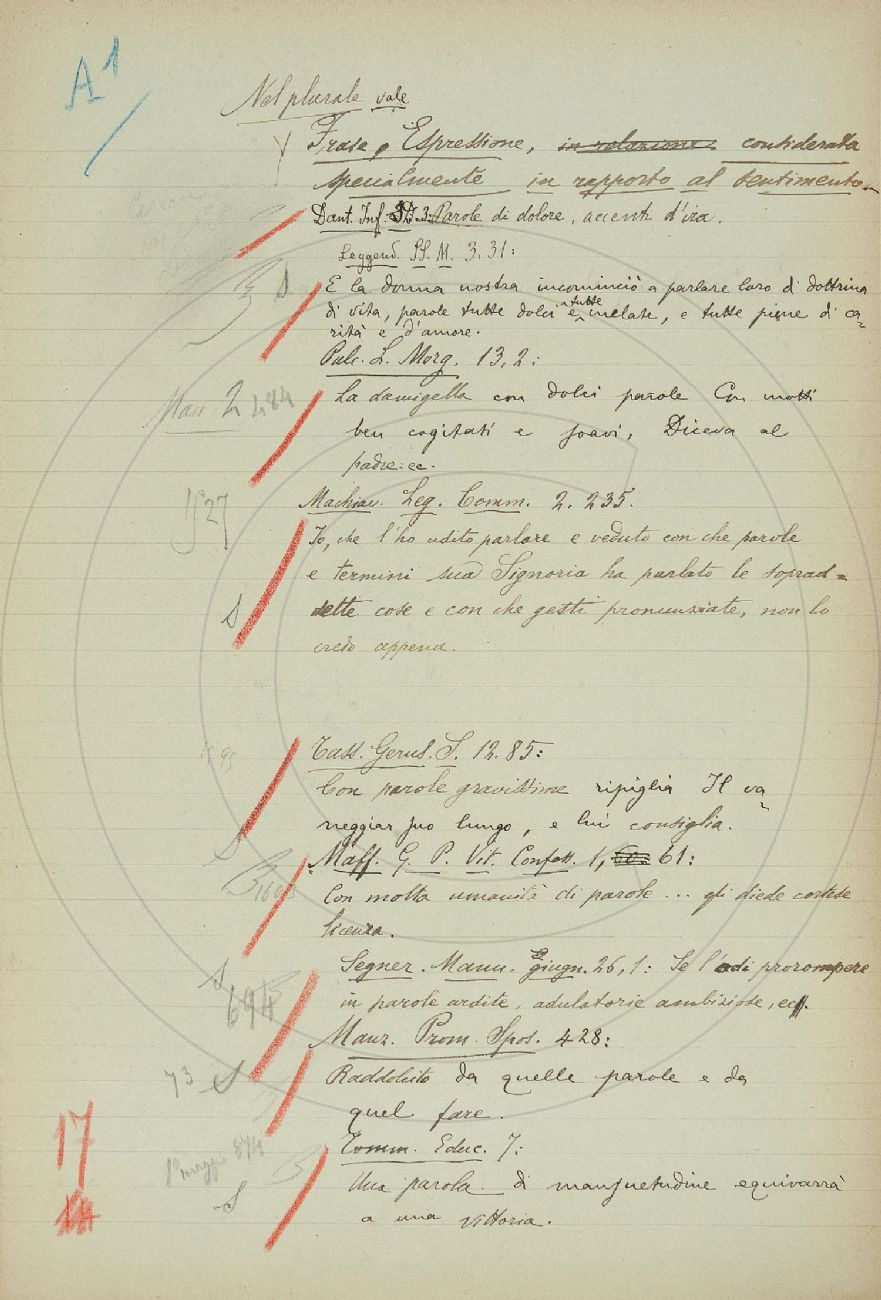 A 1
Nel plurale vale
Frase, Espressione, in relazione considerata
specialmente in rapporto al sentimento.
Dant. Inf. 3: Parole di dolore, accenti d'ira.
Leggend. SS. M. 3. 31:
S E la donna nostra incominciò a parlare loro di dottrina
di vita, parole tutte dolci e tutte melate, e tutte piene di ca-
rità e d'amore.
Pulc. L. Morg. 13, 2:
La damigella con dolci parole Con motti
ben cogitati e soavi, Diceva al
padre: ec.
Machiav. Leg. Comm. 2. 235.
27
Io, che l'ho udito parlare e veduto con che parole
e termini sua Signoria ha parlato le soprad=
S dette cose e con che gesti pronunziate, non lo
credo appena.
Tass. Gerus. S. 12. 85:
Con parole gravissime ripiglia Il va-
neggiar suo lungo, e lui consiglia.
S
Maff. G. P. Vit. Confess. 1, 60. 61:
Con molta umanità di parole ... gli diede cortese
licenza.
Segner. Mann. giugn. 26, 1: Se l'odi prorompere
S
694
in parole ardite, adulatorie ambiziose, ec.
Manz. Prom. Spos. 428:
73 S
Raddolcito da quelle parole e da
quel fare.
17
Tomm. Educ. 7:
1° maggio 874
S Una parola di mansuetudine equivarrà
a una vittoria.